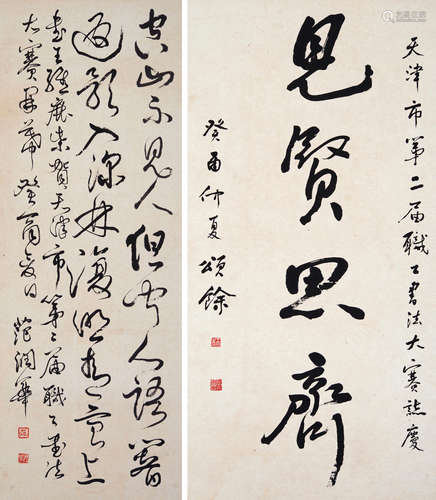 天津市第二届職工書法大賽誌慶
見賢思齊
癸酉仲夏 頌餘
空山不見人但聞人語響
返影入深林復照青苔上
書王維鹿柴賀天津市第二届職工書法
大賽開幕 癸酉夏日 范潤華